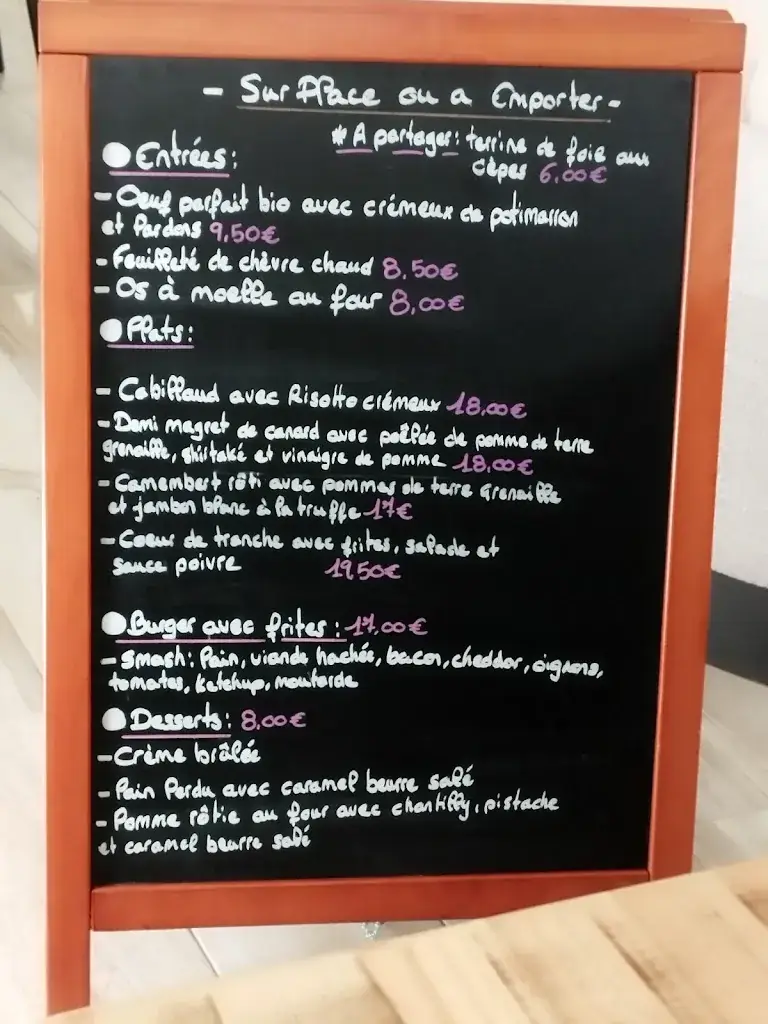 - Sur Place ou a Emporter -
* A partager: terrine de foie aux
cèpes 6,00€
Entrées:
- Oeuf parfait bio avec crémeux de potimarron
et lardons 9,50€
- Feuilleté de chèvre chaud 8,50€
- Os à moelle au four 8,00€
Plats:
- Cabillaud avec Risotto crémeux 18,00€
- Demi magret de canard avec poêlée de pomme de terre
grenaille, shiitaké et vinaigre de pomme 18,00€
- Camembert rôti avec pommes de terre Grenaille
et jambon blanc à la truffe 17€
- Coeur de tranche avec frites, salade et
sauce poivre 19,50€
Burger avec frites: 17,00€
- Smash: Pain, viande hachée, bacon, cheddar, oignons,
tomates, Ketchup, moutarde
Desserts: 8,00€
- Crème brûlée
- Pain Perdu avec caramel beurre salé
- Pomme rôtie au four avec chantilly, pistache
et caramel beurre salé